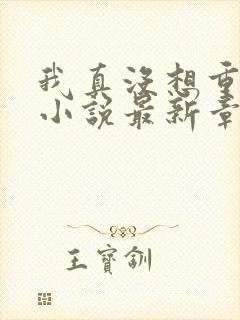 我真没想重
小说最新章
王宝钏